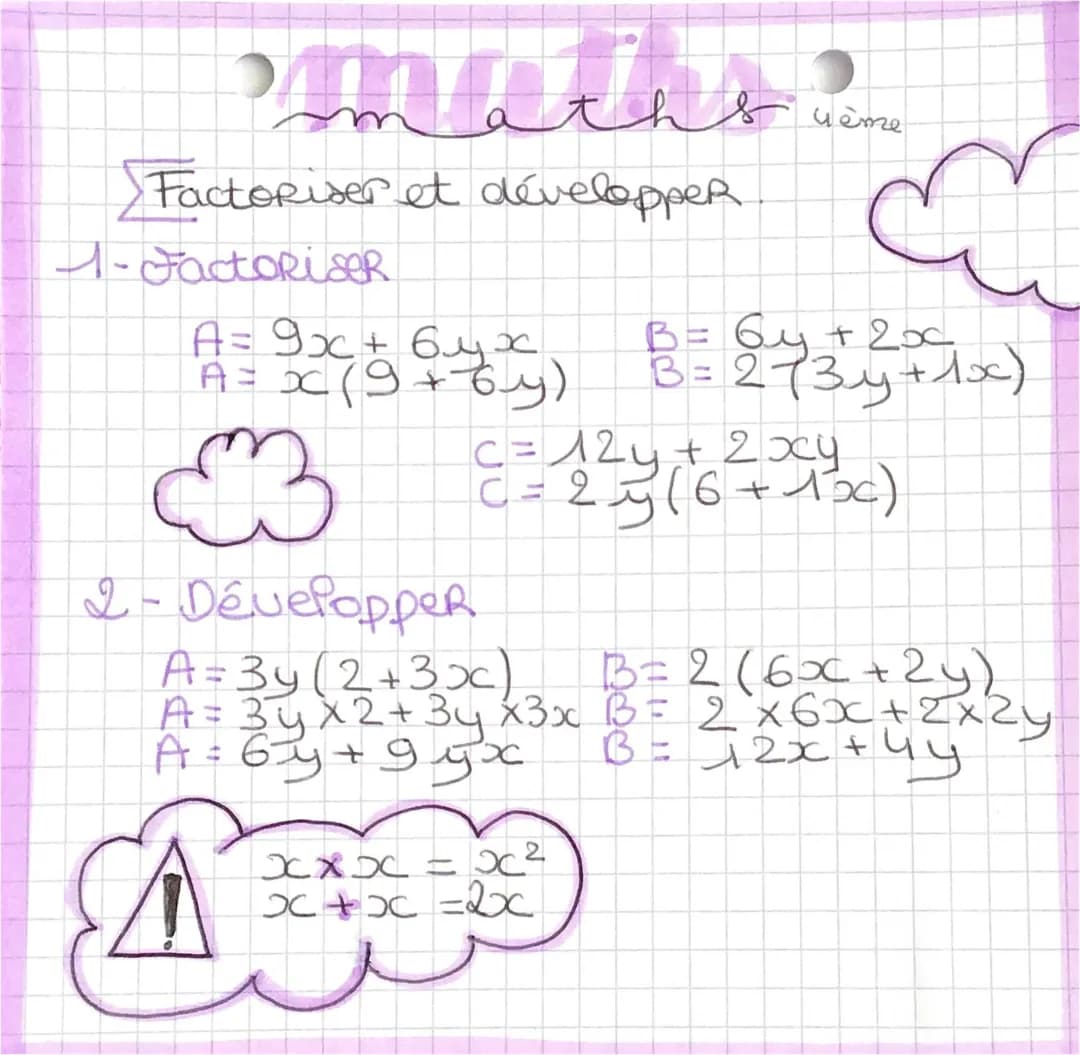 maths
maths 4ème
Factoriser et développer.
1- Factoriser
A = 9x + 6yx
A = x(9 + 6y)
B = 6y + 2x
B = 2(3y + 1x)
C = 12y + 2xy
C = 2y(6 + 1x)
2 - Développer
A = 3y(2+3x)
A = 3y x2 + 3y x3x
A = 6y + 9yx
B = 2(6x + 2y)
B = 2 x6x + 2x2y
B = 12x + 4y
!
x x x = x²
x + x = 2x